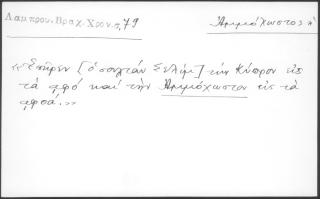 Λάμπρου, Βραχ. Χρον. σ, 79
Ἀμμόχωστος ἡ
«Ἐπῆρεν [ὁ σουλτάν Σελήμ] τὴν Κύπρον εἰς
τὰ αφό καὶ τὴν Ἀμμόχωστον εἰς τὰ
αφοά.»